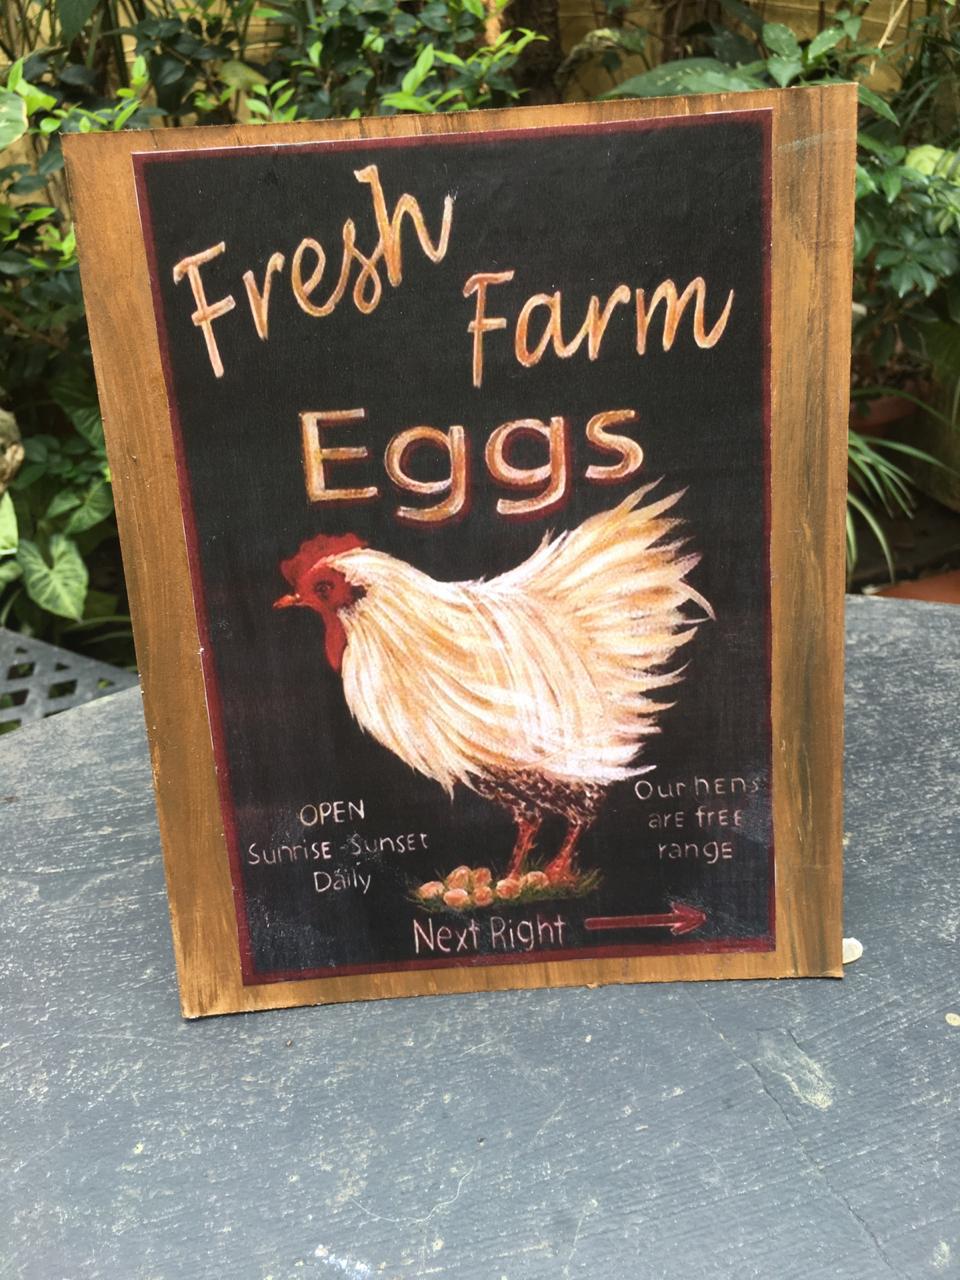 Fresh
Farm
Eggs
OPEN
Sunrise-Sunset
Daily
Our hens
are free
range
Next Right